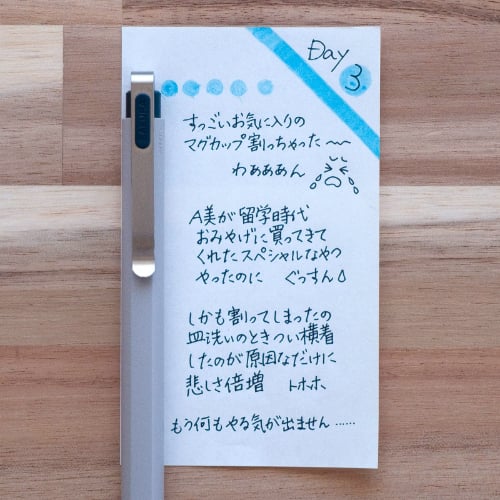 Day 3.
すっごいお気に入りの
マグカップ割っちゃった〜〜
わぁぁぁん
A美が留学時代
おみやげに買ってきて
くれたスペシャルなやつ
やったのに ぐっすん
しかも割ってしまったの
皿洗いのときつい横着
したのが原因なだけに
悲しさ倍増 トホホ、
もう何もやる気が出ません……